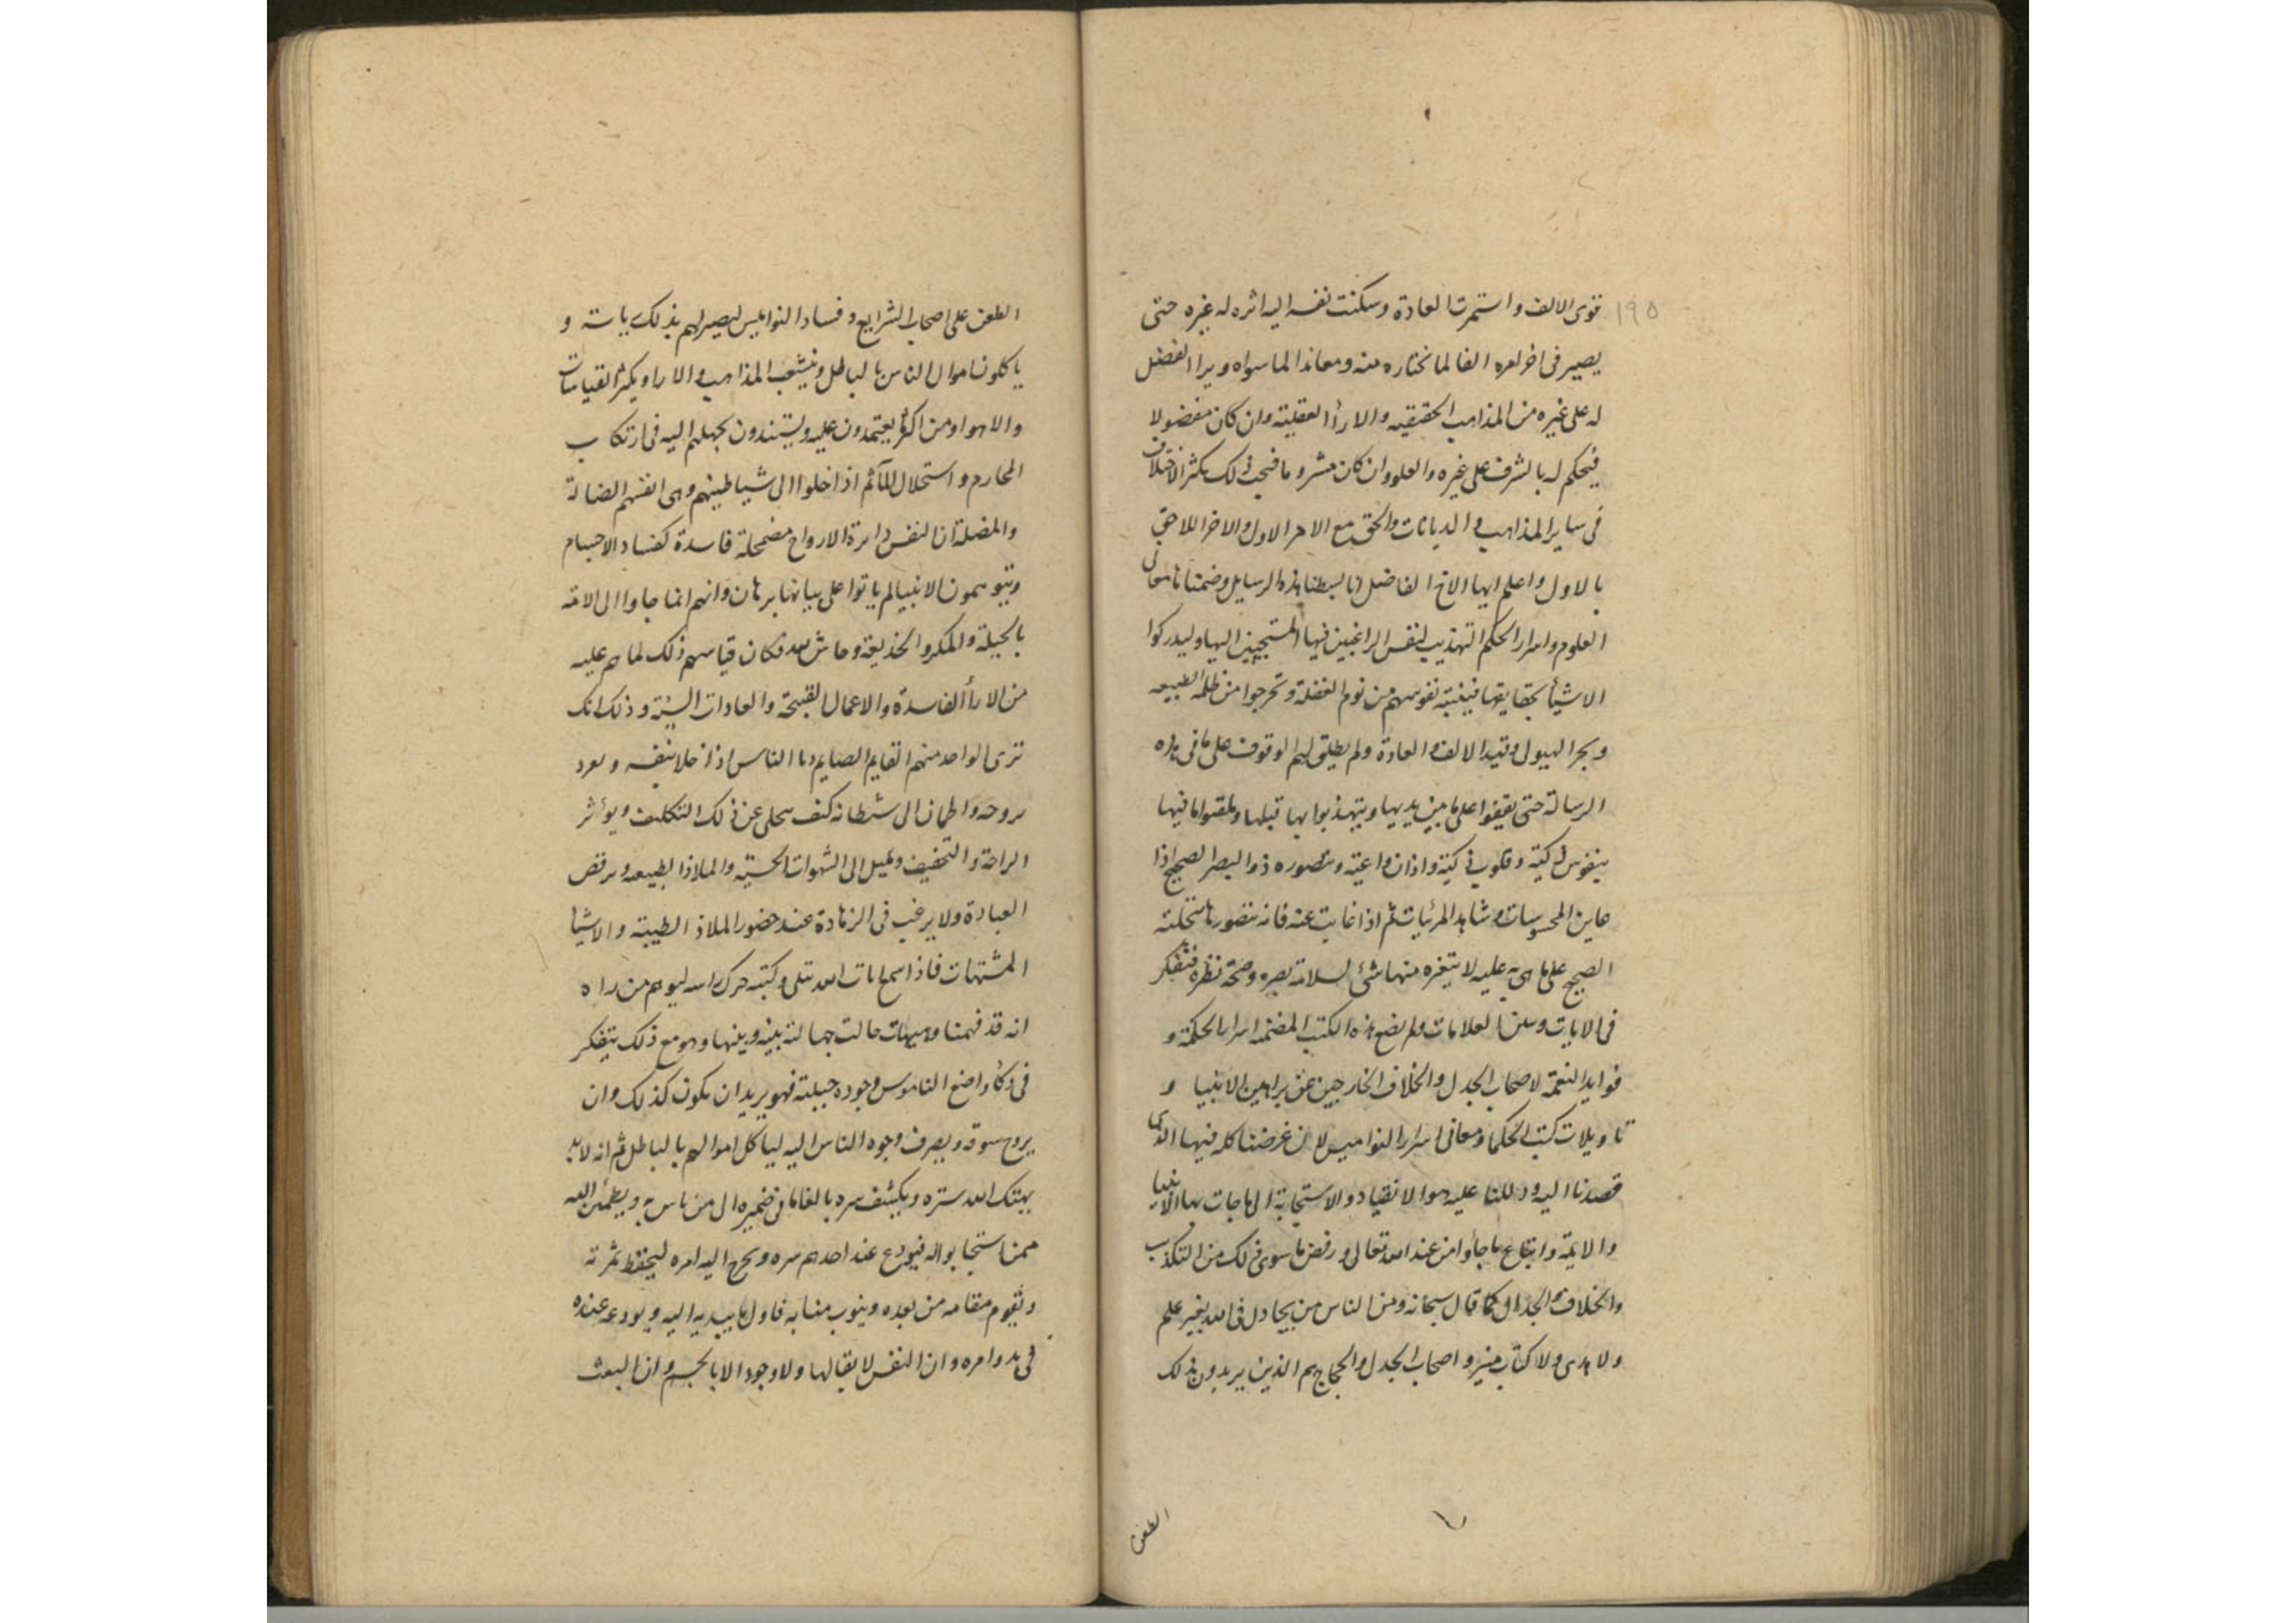 ١٩٥
قوى الالف واستمرت العادة وسكنت نفسه اليه اثره له غيره حتى
يصير فى اخر امره الفا لما نختاره منه ومعاندا لما سواه ويرا الفضل
له على غيره من المذاهب الحقيقيه والارأ العقليته وان كان مفضولا
فيحكم له بالشرف على غيره والعلو وان كان مشروما فيجب ذلك يكثر الاختلاف
فى ساير المذاهب والديانات والحق مع الامر الاول والاخر اللاحق
بالاول واعلم ايها الاخ الفاضل انا بسطنا هذه الرسايل وضمناها معانى
العلوم واسرار الحكم التهذيب لنفس الراغبين فيها المستجيبين اليها وليدركوا
الاشيأ بحقايقها فينتبه نفوسهم من نوم الغفلة وتخرجوا من ظلمة الطبيعه
وبحر الهيولى وقيد الالف والعادة ولم يطلق لهم الوقوف على ما فى هذه
الرسالة حتى يقفوا على ما بين يديها ويتهذبوا بها قبلها وتلقوا ما فيها
بنفوس زكية وقلوب ذكية واذان واعية ومتصوره ذو البصر الصحيح اذا
عاين المحسوسات وشاهد المرئيات ثم اذا غابت عنه فانه تتصورها متخلته
الصحيح على ما هى به عليه لا يتغره منها شئ لسلامة بصره وصحة نظره فتفكر
فى الايات وسلن العلامات ولم نضع هذه الكتب المضمنه اسرار الحكمة و
فوايد النعمة لاصحاب الجدل والخلاف الخارجين عن براهين الانبيا و
تاويلات كتب الحكما ومعانى اسرار النواميس لان غرضنا كله فيها الذى
قصدنا اليه ودللنا عليه هو الانقياد والاستجابة الى ما جات بها الانبيا
والايمة واتباع ما جأوا من عند الله تعالى ورفض ما سوى ذلك من التكذب
والخلاف والجدال كما قال سبحانه ومن الناس من يجادل فى الله بغير علم
ولا هدى ولا كتاب منير واصحاب الجدل والحجاج هم الذين يريدون بذلك
الطعن
الطعن على اصحاب الشرايع وفساد النواميس ليصير لهم بذلك ياسة و
ياكلون اموال الناس بالباطل ونيشعب المذاهب والارا ويكثر القياسات
والاهوا ومن اكثر يعتمدون عليه ويستندون بجهلهم اليه فى ارتكاب
المحارم واستحلال المآثم اذا خلوا الى شياطينهم وهى انفسهم الضالة
والمضلة ان النفس داىرة الارواح مضمحلة فاسدة كفساد الاجسام
ويتوهمون الانبيا لم ياتوا على بيانها برهان وانهم انما جاوا الى الامة
بالحيلة والمكر والخديعة وحاش لله فكان قياسهم ذلك لما هم عليه
من الارأ الفاسدة والاعمال القبيحة والعادات السيئة وذلك انك
ترى الواحد منهم القايم الصايم دما الناس اذا خلا بنفسه وىعرد
ىروحه واطمان الى شىطانه كىف ىىحلى عن ذلك التكليف ويوثر
الراحة والتخفيف ويميل الى الشهوات الحسية والملاذ الطبيعه ويرفض
العبادة ولا يرغب فى الزهادة عند حضور الملاذ الطيبة والاشيا
المشتهات فاذا سمع ايات الله تتلى وكتبه حرك راسه ليوهم من راه
انه قد فهمنا وهيهات حالت جهالته بينه وبينها وهو مع ذلك يتفكر
فى ذكأ واضع الناموس وجوده جبلته فهو يريد ان يكون كذلك وان
يروح سوقه ويصرف وجوه الناس اليه لياكل اموالهم بالباطل ثم انه لا بد
يهتك الله ستره ويكشف سره بالقا ما فى ضميره الى من ياىس به ويطمئن اليه
ممن استجابوا له فيودع عند احدهم سره ويخرج اليه امره ليحفظ ثمرته
وىقوم مقامه من بعده وينوب منابه فاول ما يبديه اليه ويودعه عنده
فى بدو امره وان النفس لا بقا لها ولا وجود الا بالجسم وان البعث